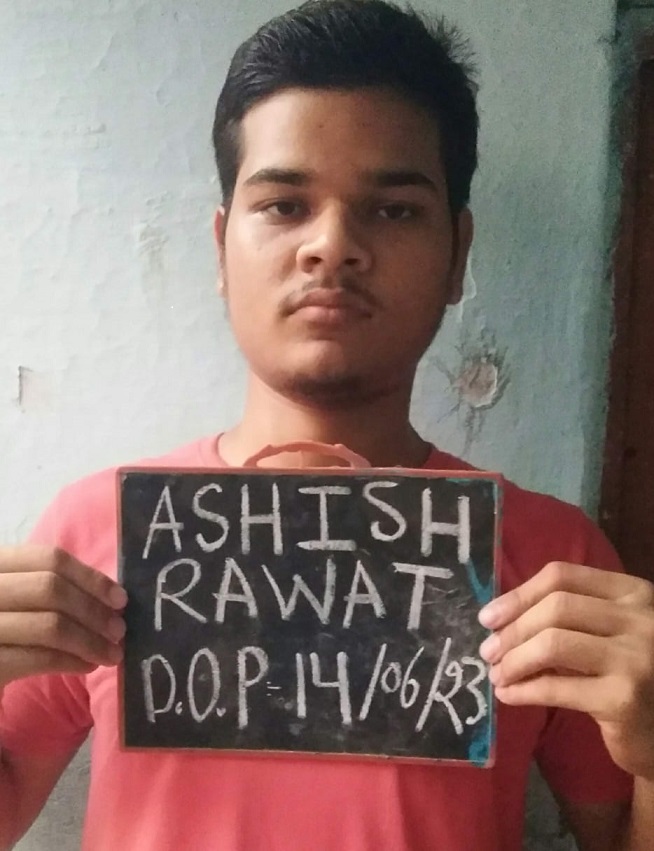 ASHISH
RAWAT
D.O.P-14/06/23